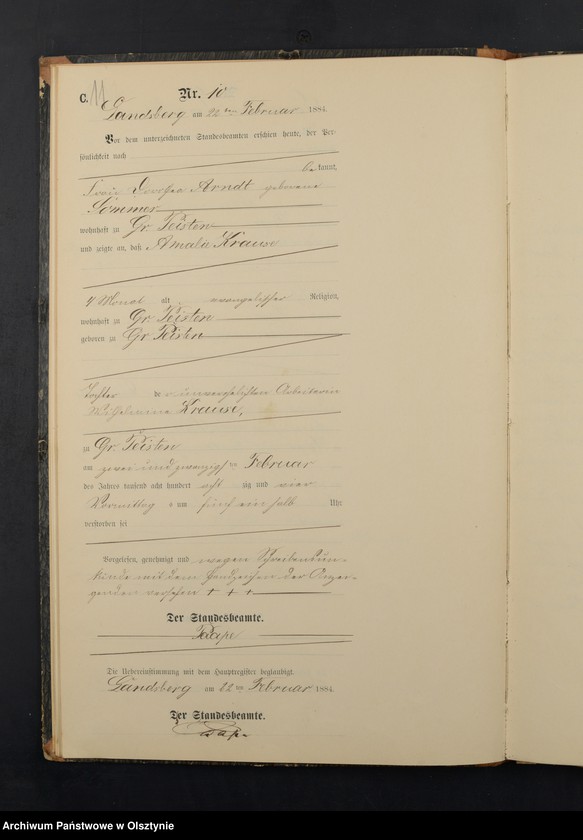 C. 11
Nr. 10
Landsberg am 22ten Februar 1884.
Vor dem unterzeichneten Standesbeamten erschien heute, der Per-
sönlichkeit nach
bekannt,
Frau Dorothea Arndt geborene
Sommer
wohnhaft zu Gr. Peisten
und zeigte an, daß Amalie Krause
4 Monat alt evangelischer Religion,
wohnhaft zu Gr. Peisten
geboren zu Gr. Peisten
Tochter der unverehelichten Arbeiterin
Wilhelmine Krause,
zu Gr. Peisten
am zwei und zwanzigsten Februar
des Jahres tausend acht hundert acht zig und vier
Vormittags um fünf ein halb Uhr
verstorben sei
Vorgelesen, genehmigt und wegen Schreibensun-
kunde mit dem Handzeichen der Anzei-
genden versehen + + +
Der Standesbeamte.
Pape
Die Uebereinstimmung mit dem Hauptregister beglaubigt.
Landsberg am 22ten Februar 1884
Der Standesbeamte.
Pape
Archiwum Państwowe w Olsztynie